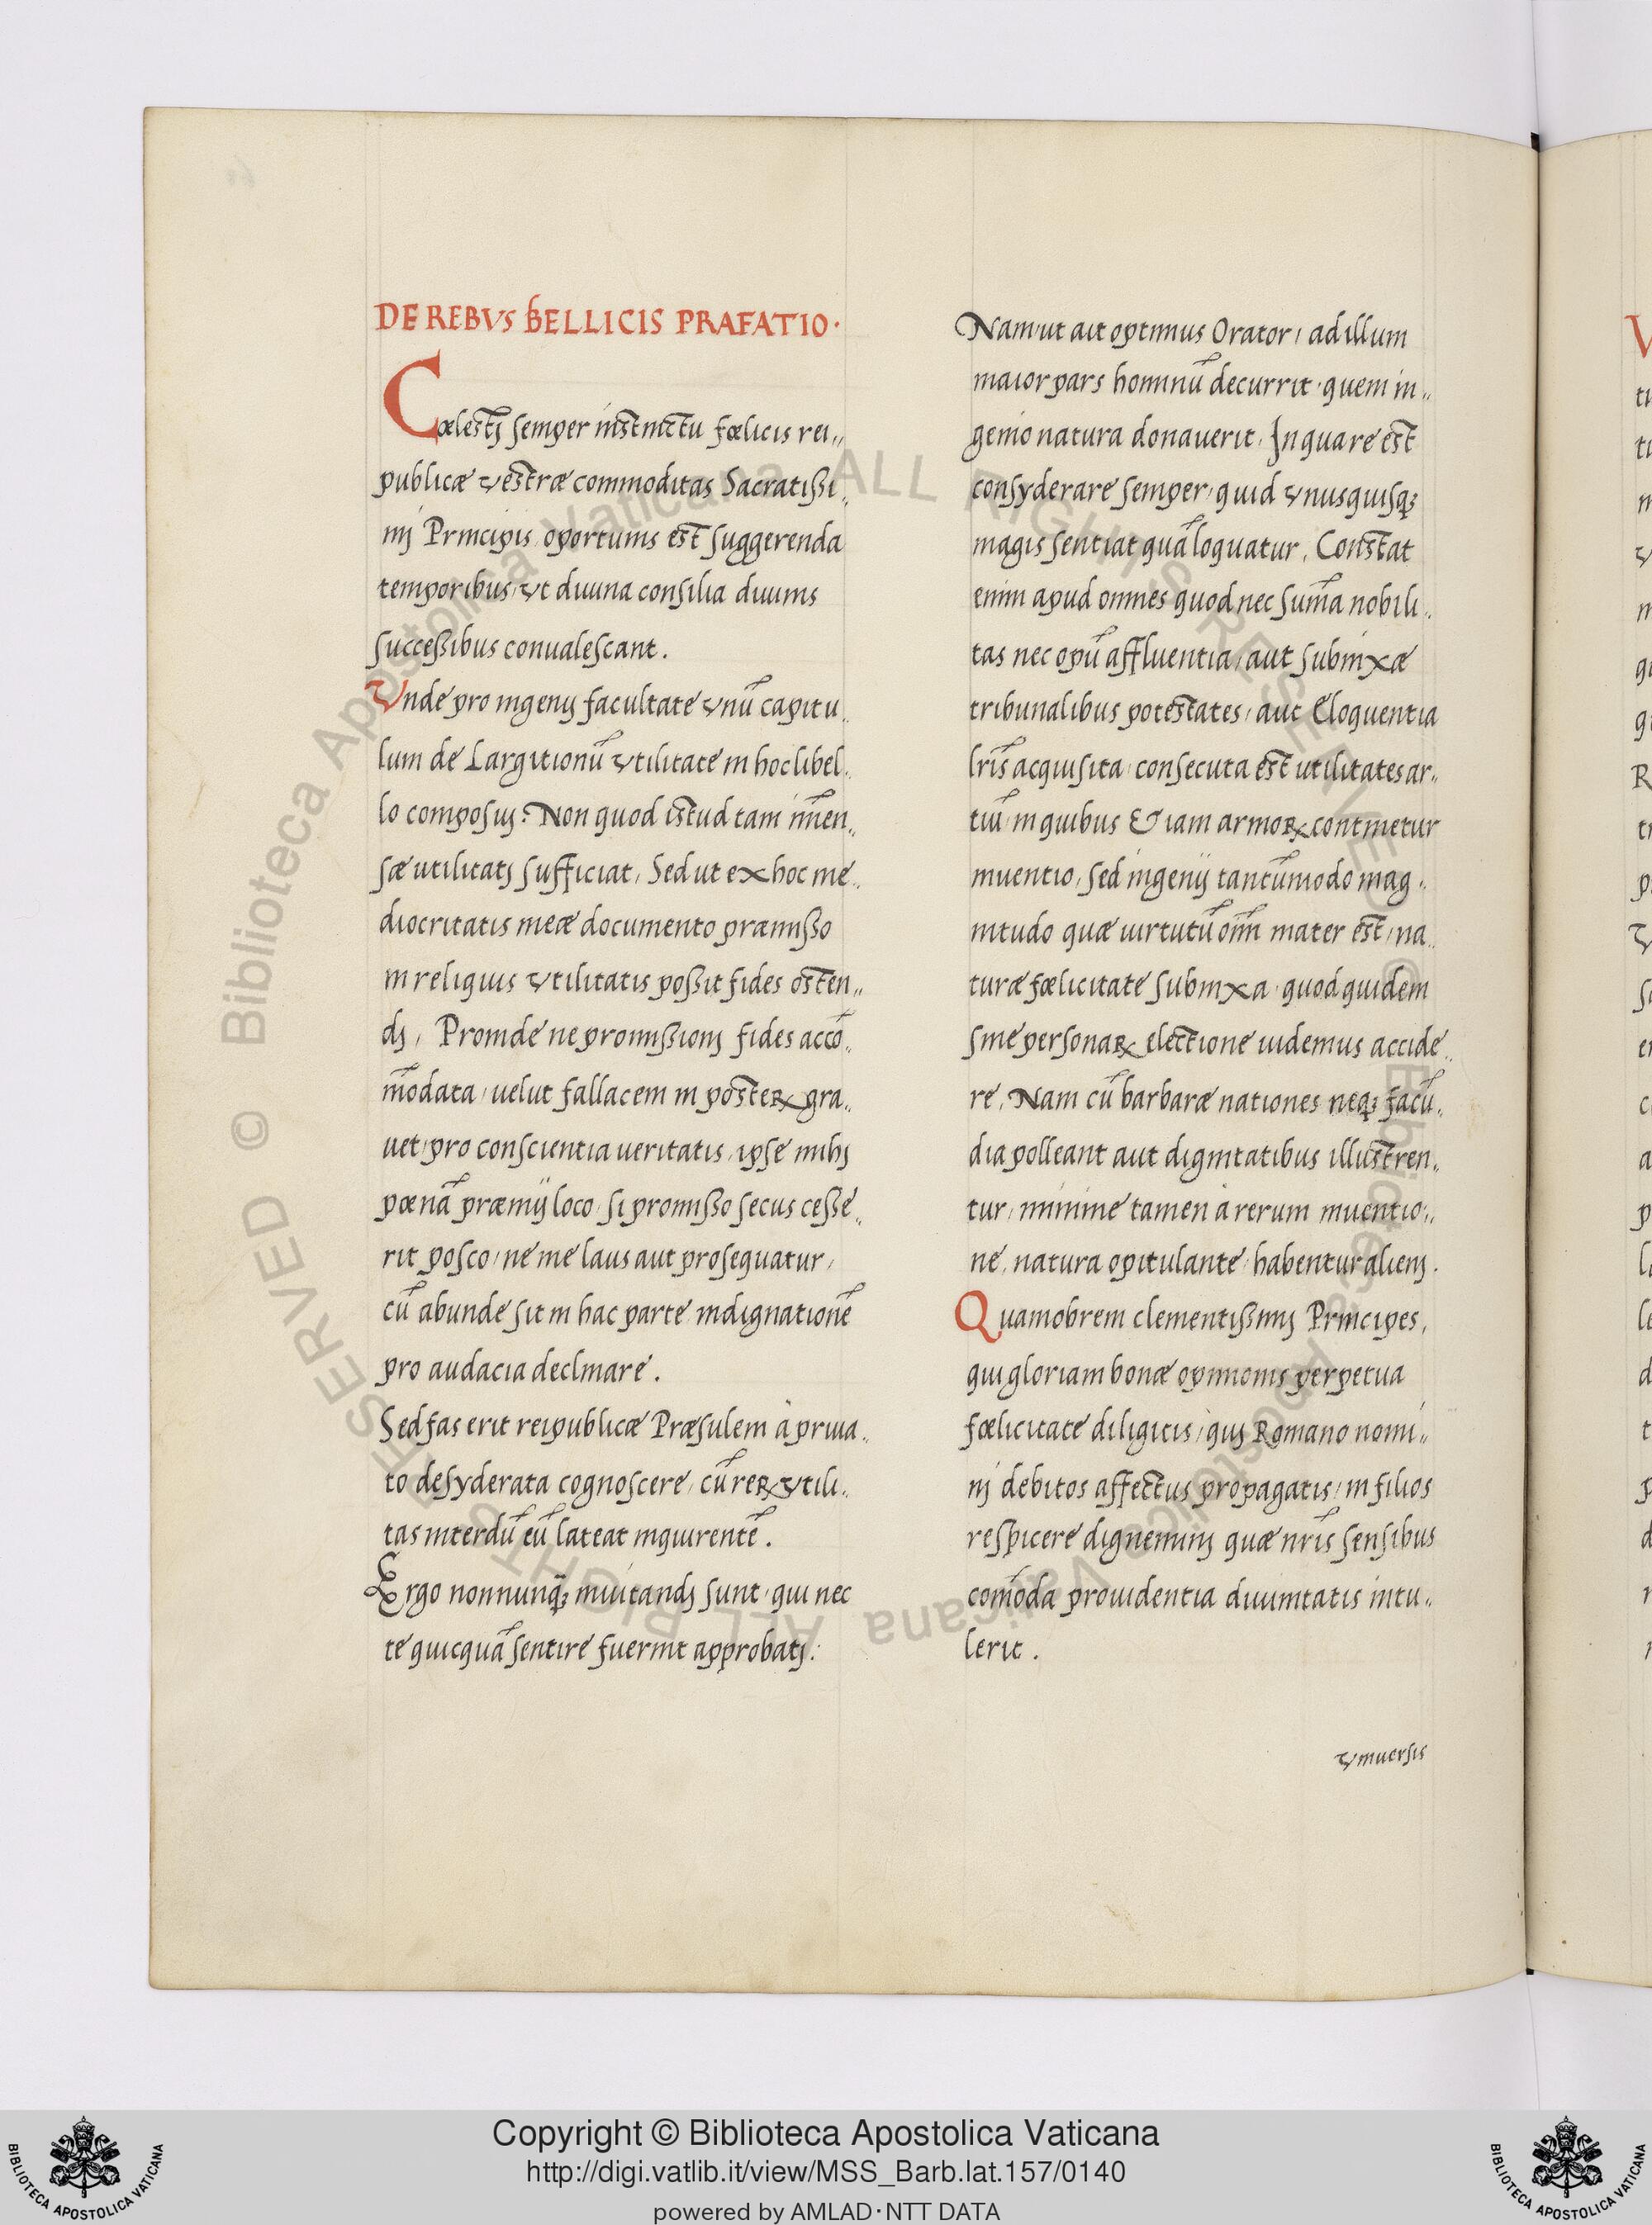 DE REBVS BELLICIS PRAFATIO·
Cœlestj semper instinctu fœlicis rei„
publicæ vestræ commoditas Sacratißi„
mj Principis oportunis est suggerenda
temporibus, vt diuina consilia diuinis
succeßibus conualescant.
Vnde pro ingenij facultate vnū capitu„
lum de Largitionū vtilitate in hoc libel„
lo composuj: Non quod istud tam im̄en„
sæ utilitatj sufficiat, Sed ut ex hoc me„
diocritatis meæ documento præmißo
in reliquis vtilitatis poßit fides osten„
dj, Proinde ne promißionj fides acco„
m̄odata, uelut fallacem in posteꝝ gra„
uet, pro conscientia ueritatis, ipse mihj
pœnā præmij loco, si promißo secus ceße„
rit posco, ne me laus aut prosequatur,
cū abunde sit in hac parte indignationē
pro audacia declinare.
Sed fas erit reipublicæ Præsulem à priua„
to desyderata cognoscere, cū reꝝ vtili„
tas interdū eū lateat inquirentē.
Ergo nonnunq̄ꝫ inuitandj sunt, qui nec
te quicquā sentire fuerint approbatj:
Nam ut ait optimus Orator, ad illum
maior pars hominū decurrit, quem in„
genio natura donauerit, In qua re est
consyderare semper, quid vnusquisqꝫ
magis sentiat quā loquatur, Constat
enim apud omnes quod nec sum̄a nobili„
tas nec opū affluentia, aut subnixæ
tribunalibus potestates, aut Eloquentia
lr̄is acquisita, consecuta est utilitates ar„
tiū, in quibus & iam armoꝝ continetur
inuentio, sed ingenij tantūmodo mag„
nitudo quæ uirtutū om̄i mater est, na„
turæ fœlicitate subnixa, quod quidem
sine personaꝝ electione uidemus accide„
re, Nam cū barbaræ nationes neqꝫ facū„
dia polleant aut dignitatibus illustren„
tur, minime tamen à rerum inuentio„
ne, natura opitulante, habentur alienj.
Quamobrem clementißimj Principes,
qui gloriam bonæ opinionis perpetua
fœlicitate diligitis, quj Romano nomi„
nj debitos affectus propagatis, in filios
respicere digneminj quæ nr̄is sensibus
com̄oda prouidentia diuinitatis intu„
lerit.
vniuersis
Copyright © Biblioteca Apostolica Vaticana
http://digi.vatlib.it/view/MSS_Barb.lat.157/0140
powered by AMLAD·NTT DATA